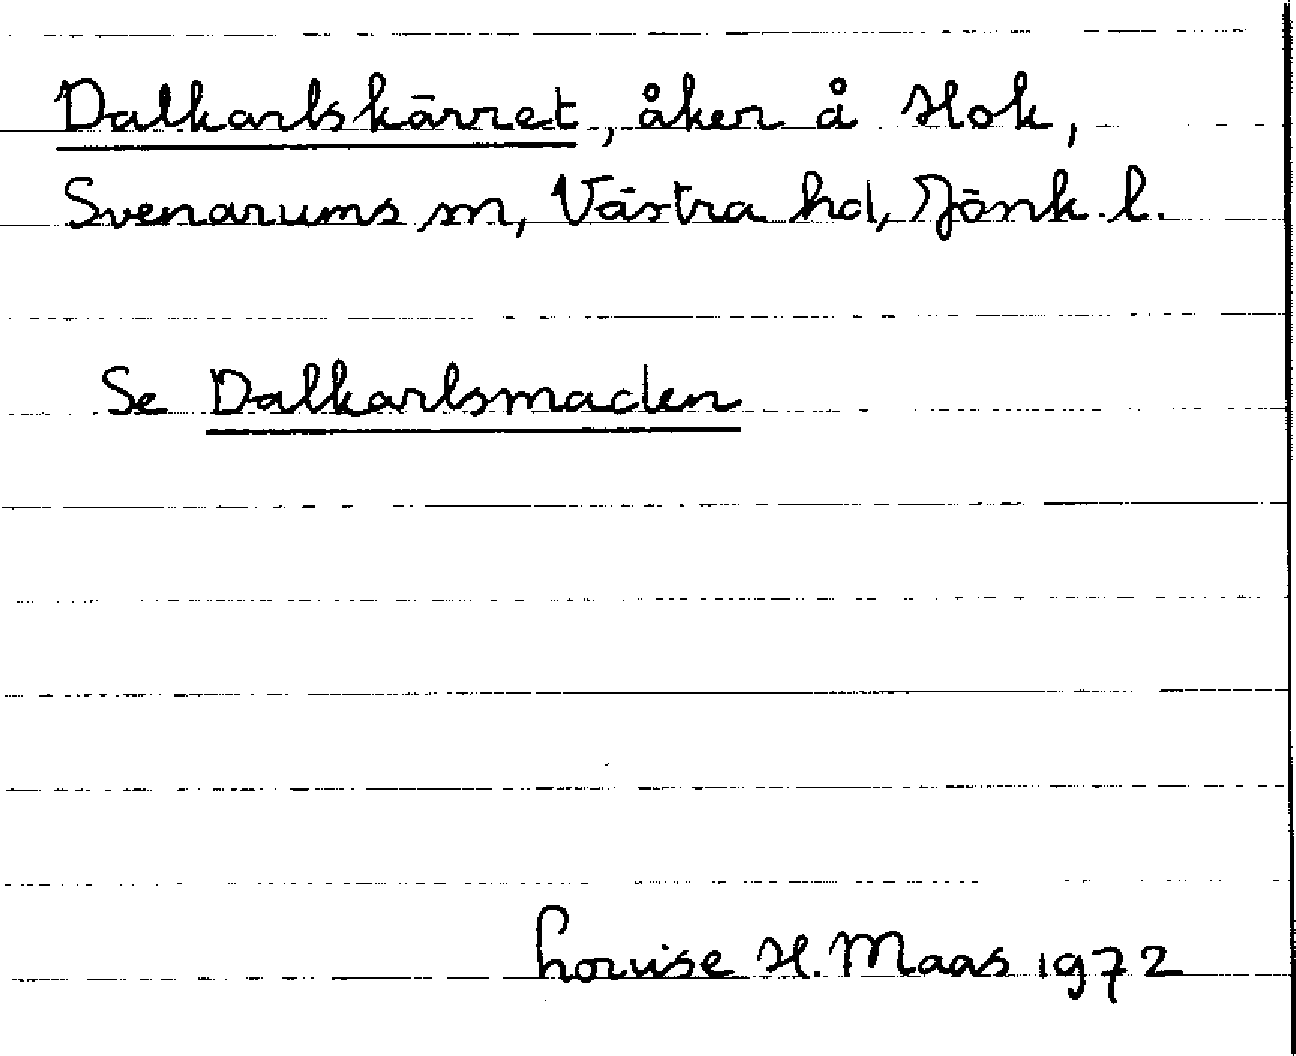 Dalkarlskärret, åker å Hok,
Svenarums sn, Västra hd, Jönk. l.
Se Dalkarlsmaden
Louise H. Maas 1972